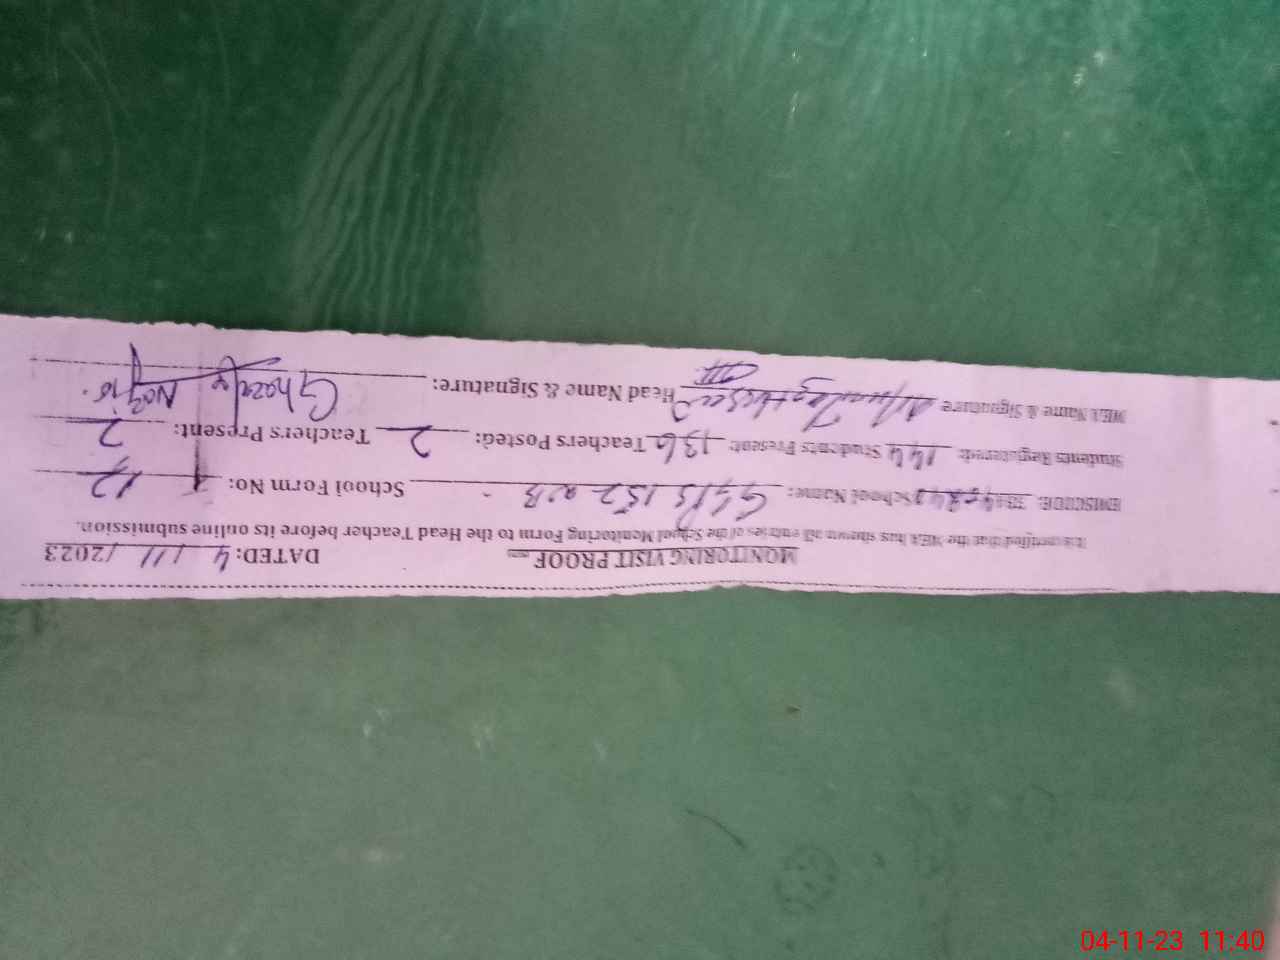 MONITORING VISIT PROOF DATED: 4 / 11 / 2023
It is certified that the MEA has shown all entries of the School Monitoring Form to the Head Teacher before its online submission.
EMISCODE: School Name: GGPS 152 WB School Form No: 12
Students Registered: 144 Students Present: 136 Teachers Posted: 2 Teachers Present: 2
MEA Name & Signature Head Name & Signature: Ghazala
04-11-23 11:40